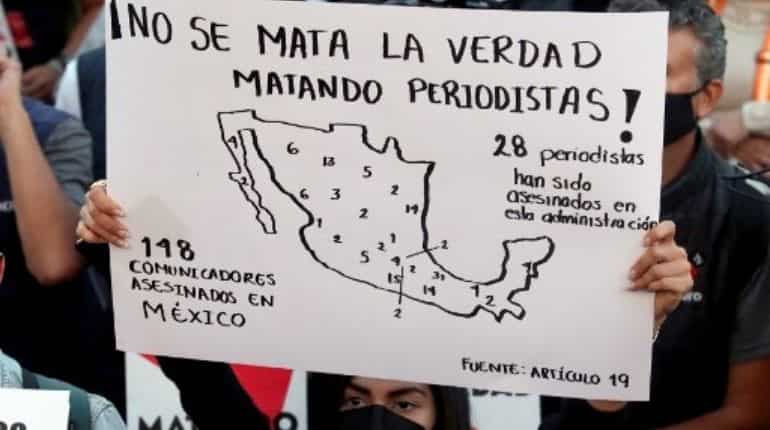 ¡NO SE MATA LA VERDAD
MATANDO PERIODISTAS!
28 periodistas
han sido
asesinados en
esta administración
4 6 13 5
2 6 3 2 2 14
1 2 2 1 2
5 4 2 31 1
15 14 4 2
2
148
COMUNICADORES
ASESINADOS EN
MÉXICO
FUENTE: ARTÍCULO 19